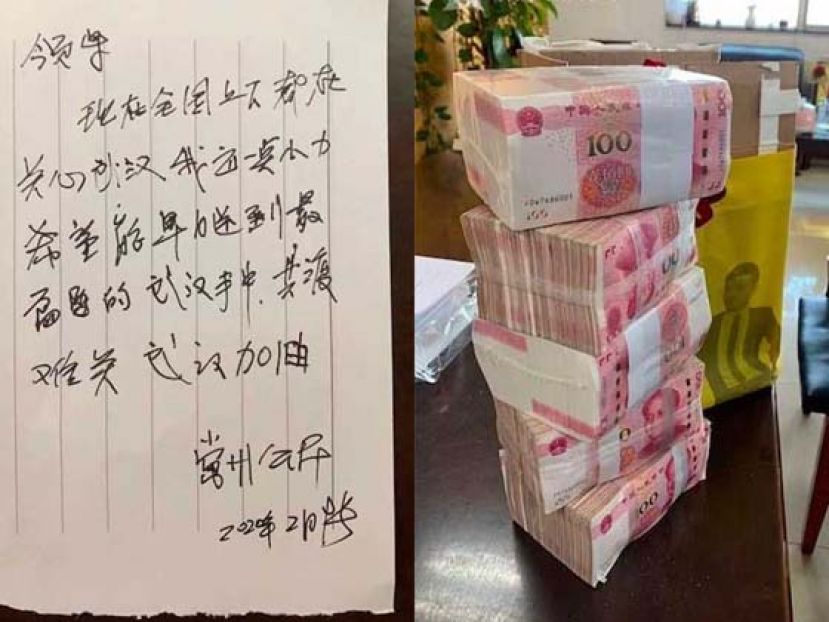 领导
现在全国上下都在
关心武汉 我还一点小力
希望能早日送到最
需要的武汉手中.共渡
难关 武汉加油
常州公民
2020年2月
中国人民银行
100
100
100
100